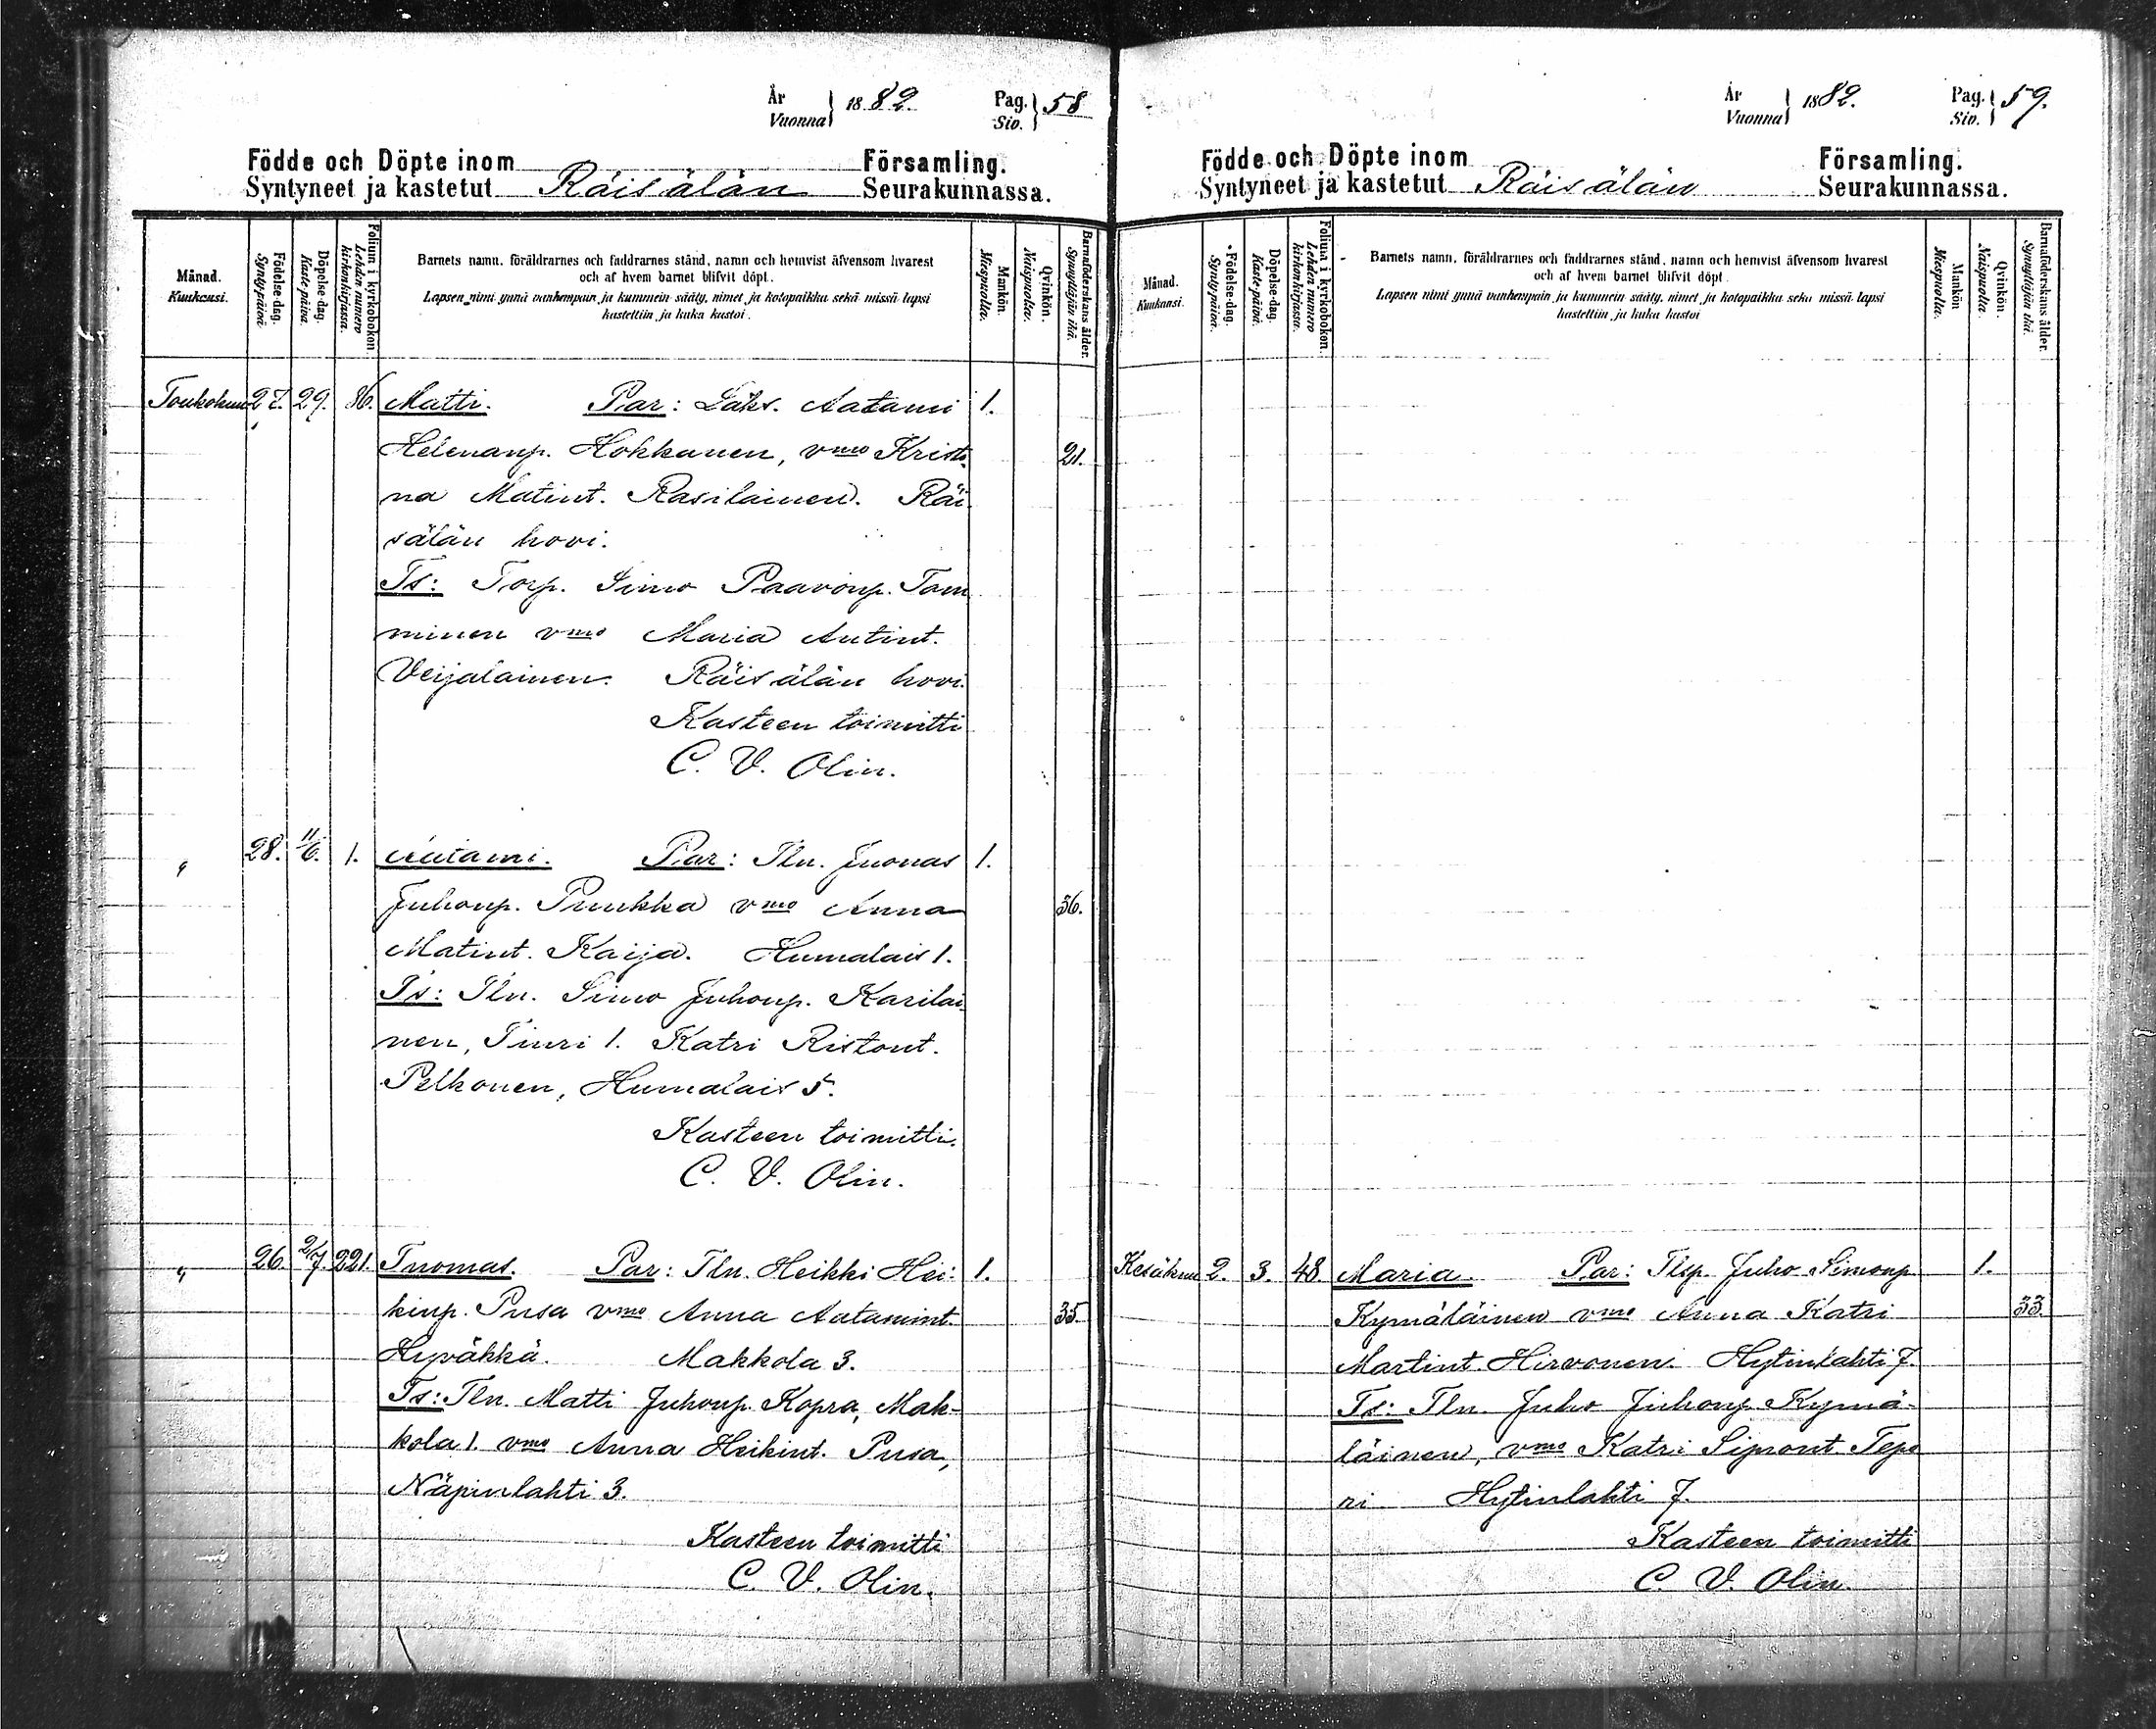 År Vuonna } 1882. Pag. Siv. } 58
Födde och Döpte inom Församling.
Syntyneet ja kastetut Räisälän Seurakunnassa.
Månad. Kuukausi.
Födelse-dag. Syntypäivä.
Döpelse-dag. Kaste-päivä.
Folium i kyrkoboken. Lehden numero kirkonkirjassa.
Barnets namn, föräldrarnes och faddrarnes stånd, namn och hemvist äfvensom hvarest
och af hvem barnet blifvit döpt.
Lapsen nimi ynnä vanhempain ja kummein sääty, nimet ja kotopaikka sekä missä lapsi
kastettiin ja kuka kastoi.
Mankön. Miespuolta.
Qvinkön. Naispuolta.
Barnaföderskans ålder. Synnyttäjän ikä.
Toukokuu 27. 29. 86. Matti. Par: Laks. Aatami 1.
Helenanp. Hokkanen, vmo Kristi- 21.
na Matint. Rasilainen. Räi-
sälän hovi.
Ts: Torp. Simo Paavonp. Tom
minen vmo Maria Antint.
Veijalainen. Räisälän hovi.
Kasteen toimitti
C. V. Olin.
" 28. 11/6. 1. Aatami. Par: Tln. Juonas 1.
Juhonp. Puukka vmo Anna 36.
Matint. Kaija. Humalais 1.
Ts: Tln. Simo Juhonp. Karilai-
nen, Tiuri 1. Katri Ristont.
Pelkonen, Humalais 5.
Kasteen toimitti.
C. V. Olin.
" 26. 2/7. 221. Tuomas. Par: Tln. Heikki Hei- 1.
kinp. Pusa vmo Anna Aatamint. 35.
Hyväkkä. Makkola 3.
Ts: Tln. Matti Juhonp. Kopra, Mak-
kola 1. vmo Anna Heikint. Pusa,
Näpinlahti 3.
Kasteen toimitti
C. V. Olin.
År Vuonna } 1882. Pag. Siv. } 59.
Födde och Döpte inom Församling.
Syntyneet ja kastetut Räisälän Seurakunnassa.
Månad. Kuukausi.
Födelse-dag. Syntypäivä.
Döpelse-dag. Kaste-päivä.
Folium i kyrkoboken. Lehden numero kirkonkirjassa.
Barnets namn, föräldrarnes och faddrarnes stånd, namn och hemvist äfvensom hvarest
och af hvem barnet blifvit döpt.
Lapsen nimi ynnä vanhempain ja kummein sääty, nimet ja kotopaikka sekä missä lapsi
kastettiin ja kuka kastoi
Mankön Miespuolta.
Qvinkön. Naispuolta.
Barnaföderskans ålder. Synnyttäjän ikä.
Kesäkuu 2. 3. 48. Maria. Par: Tlsp. Juho Simonp 1.
Kymäläinen vmo Anna Katri 33.
Martint. Hirvonen. Hytinlahti 7.
Ts: Tln. Juho Juhonp. Kymä-
läinen, vmo Katri Simont. Tepo
ri Hytinlahti 7.
Kasteen toimitti
C. V. Olin.